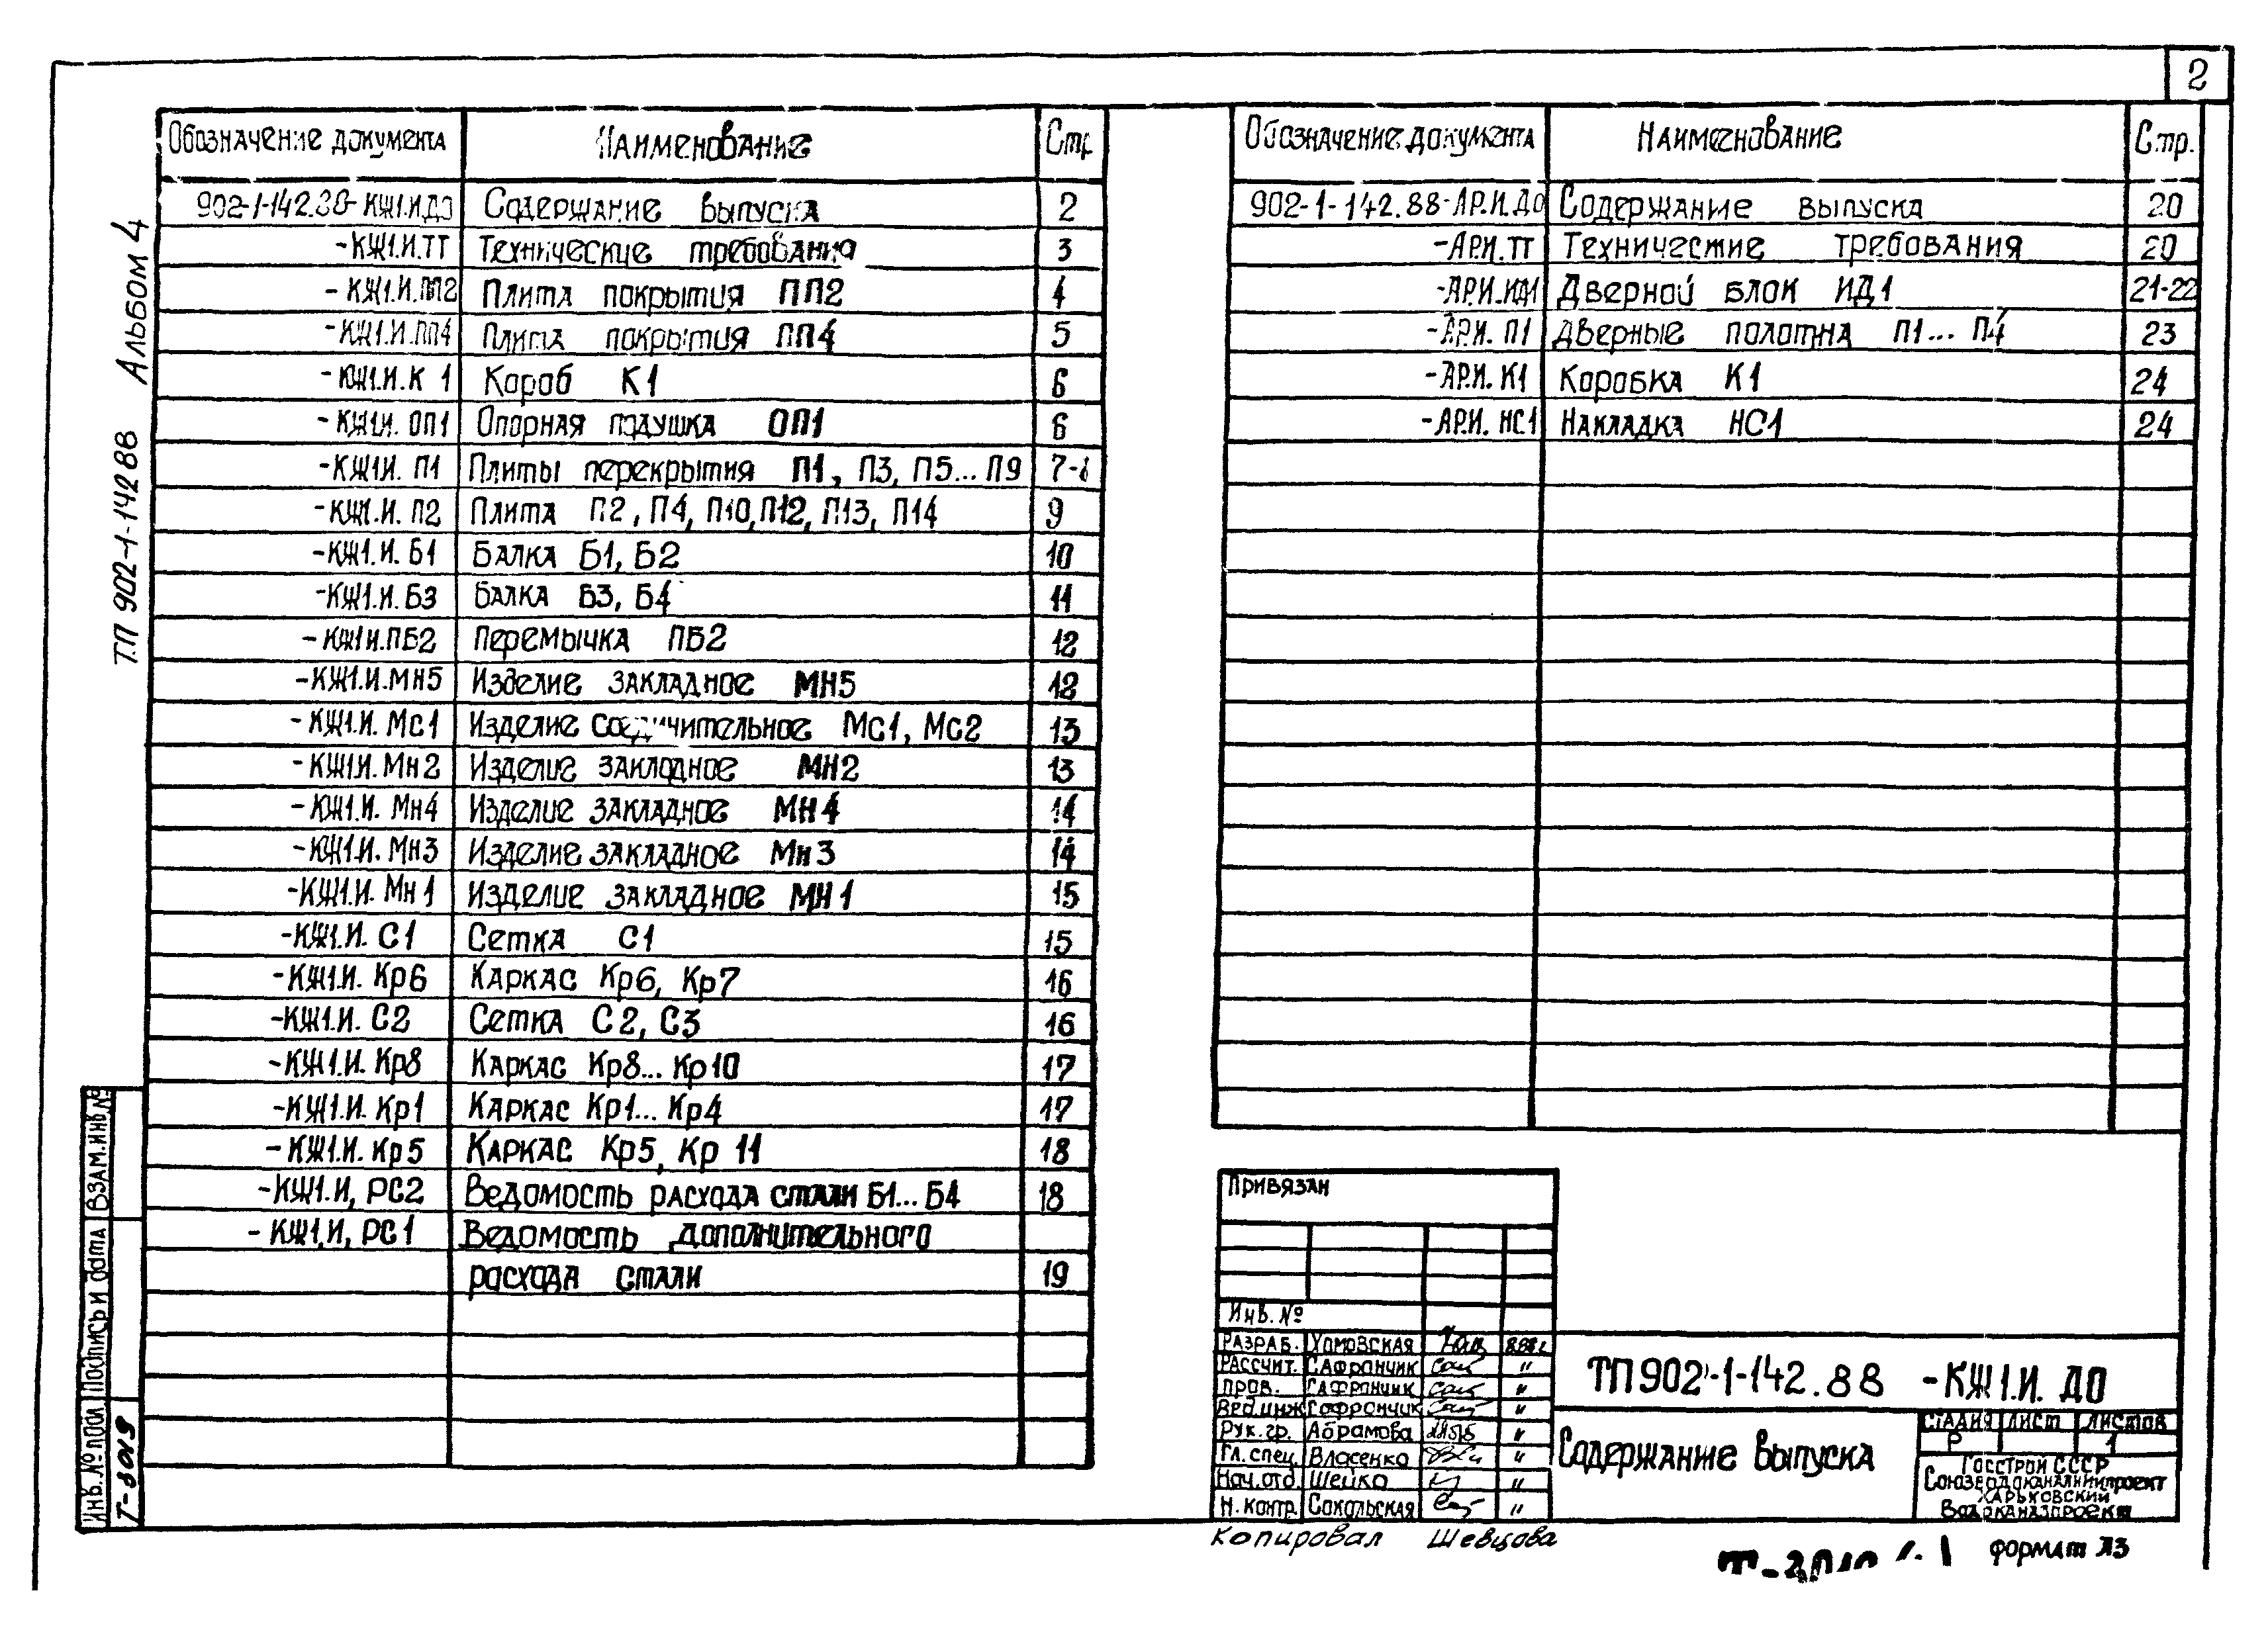 2
ТП 902-1-142 88 Альбом 4
Обозначение документа Наименование Стр
902-1-142.88-КЖ1.И.ДО Содержание выпуска 2
-КЖ1.И.ТТ Технические требования 3
-КЖ1.И.ПП2 Плита покрытия ПП2 4
-КЖ1.И.ПП4 Плита покрытия ПП4 5
-КЖ1.И.К 1 Короб К1 6
-КЖ1.И. ОП1 Опорная подушка ОП1 6
-КЖ1.И. П1 Плиты перекрытия П1, П3, П5... П9 7-8
-КЖ1.И. П2 Плита П2, П4, П10, П12, П13, П14 9
-КЖ1.И. Б1 Балка Б1, Б2 10
-КЖ1.И. Б3 Балка Б3, Б4 11
-КЖ1.И.ПБ2 Перемычка ПБ2 12
-КЖ1.И.МН5 Изделие закладное МН5 12
-КЖ1.И. Мс1 Изделие соединительное Мс1, Мс2 13
-КЖ1.И. Мн2 Изделие закладное МН2 13
-КЖ1.И. Мн4 Изделие закладное МН4 14
-КЖ1.И. Мн3 Изделие закладное Мн3 14
-КЖ1.И. Мн1 Изделие закладное МН1 15
-КЖ1.И. С1 Сетка С1 15
-КЖ1.И. Кр6 Каркас Кр6, Кр7 16
-КЖ1.И. С2 Сетка С2, С3 16
-КЖ1.И. Кр8 Каркас Кр8... Кр10 17
-КЖ1.И. Кр1 Каркас Кр1... Кр4 17
-КЖ1.И. Кр5 Каркас Кр5, Кр 11 18
-КЖ1.И, РС2 Ведомость расхода стали Б1... Б4 18
-КЖ1.И, РС1 Ведомость дополнительного
расхода стали 19
Обозначение документа Наименование Стр.
902-1-142.88-АР.И.ДО Содержание выпуска 20
-АР.И.ТТ Технические требования 20
-АР.И.ИД1 Дверной блок ИД1 21-22
-АР.И. П1 Дверные полотна П1... П4 23
-АР.И. К1 Коробка К1 24
-АР.И. НС1 Накладка НС1 24
Взам.инв.№
Подпись и дата
Инв.№ подл
Т-8019
Привязан
Инв. №
Разраб. Хомовская
Рассчит. Сафрончик "
Пров. Сафрончик "
Вед.инж Сафрончик "
Рук. гр. Абрамова "
Гл. спец. Власенко "
Нач.отд. Шейко "
Н. контр. Сокольская "
ТП902-1-142.88 -КЖ1.И. ДО
Содержание выпуска
Стадия Лист Листов
Р 1
Госстрой СССР
Союзводоканалниипроект
Харьковский
Водоканалпроект
Копировал Шевцова
формат А3